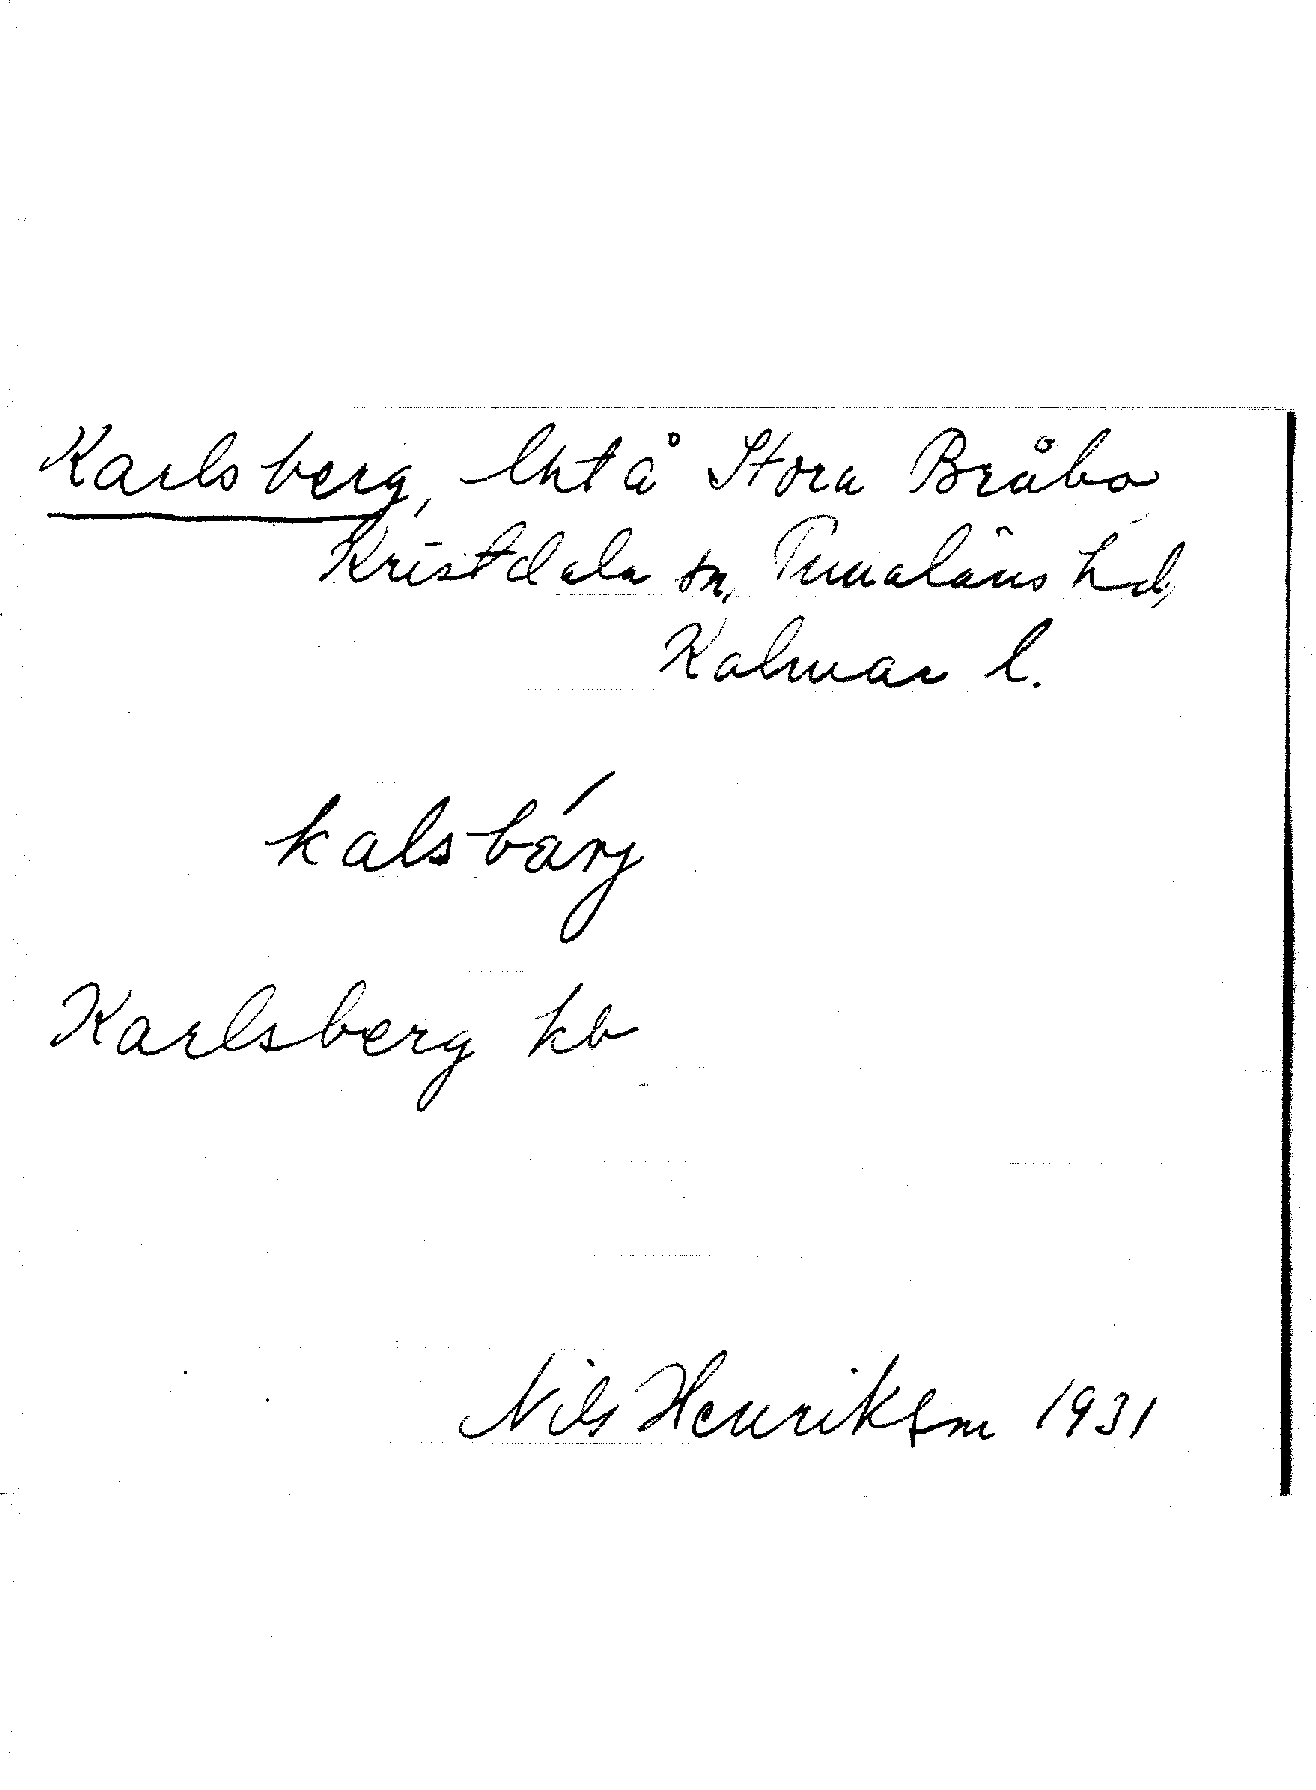 Karlsberg, lht å Stora Bråbo
Kristdala sn, Tunaläns hd,
Kalmar l.
kalsbárj
Karlsberg kb
Nils Henrikson 1931